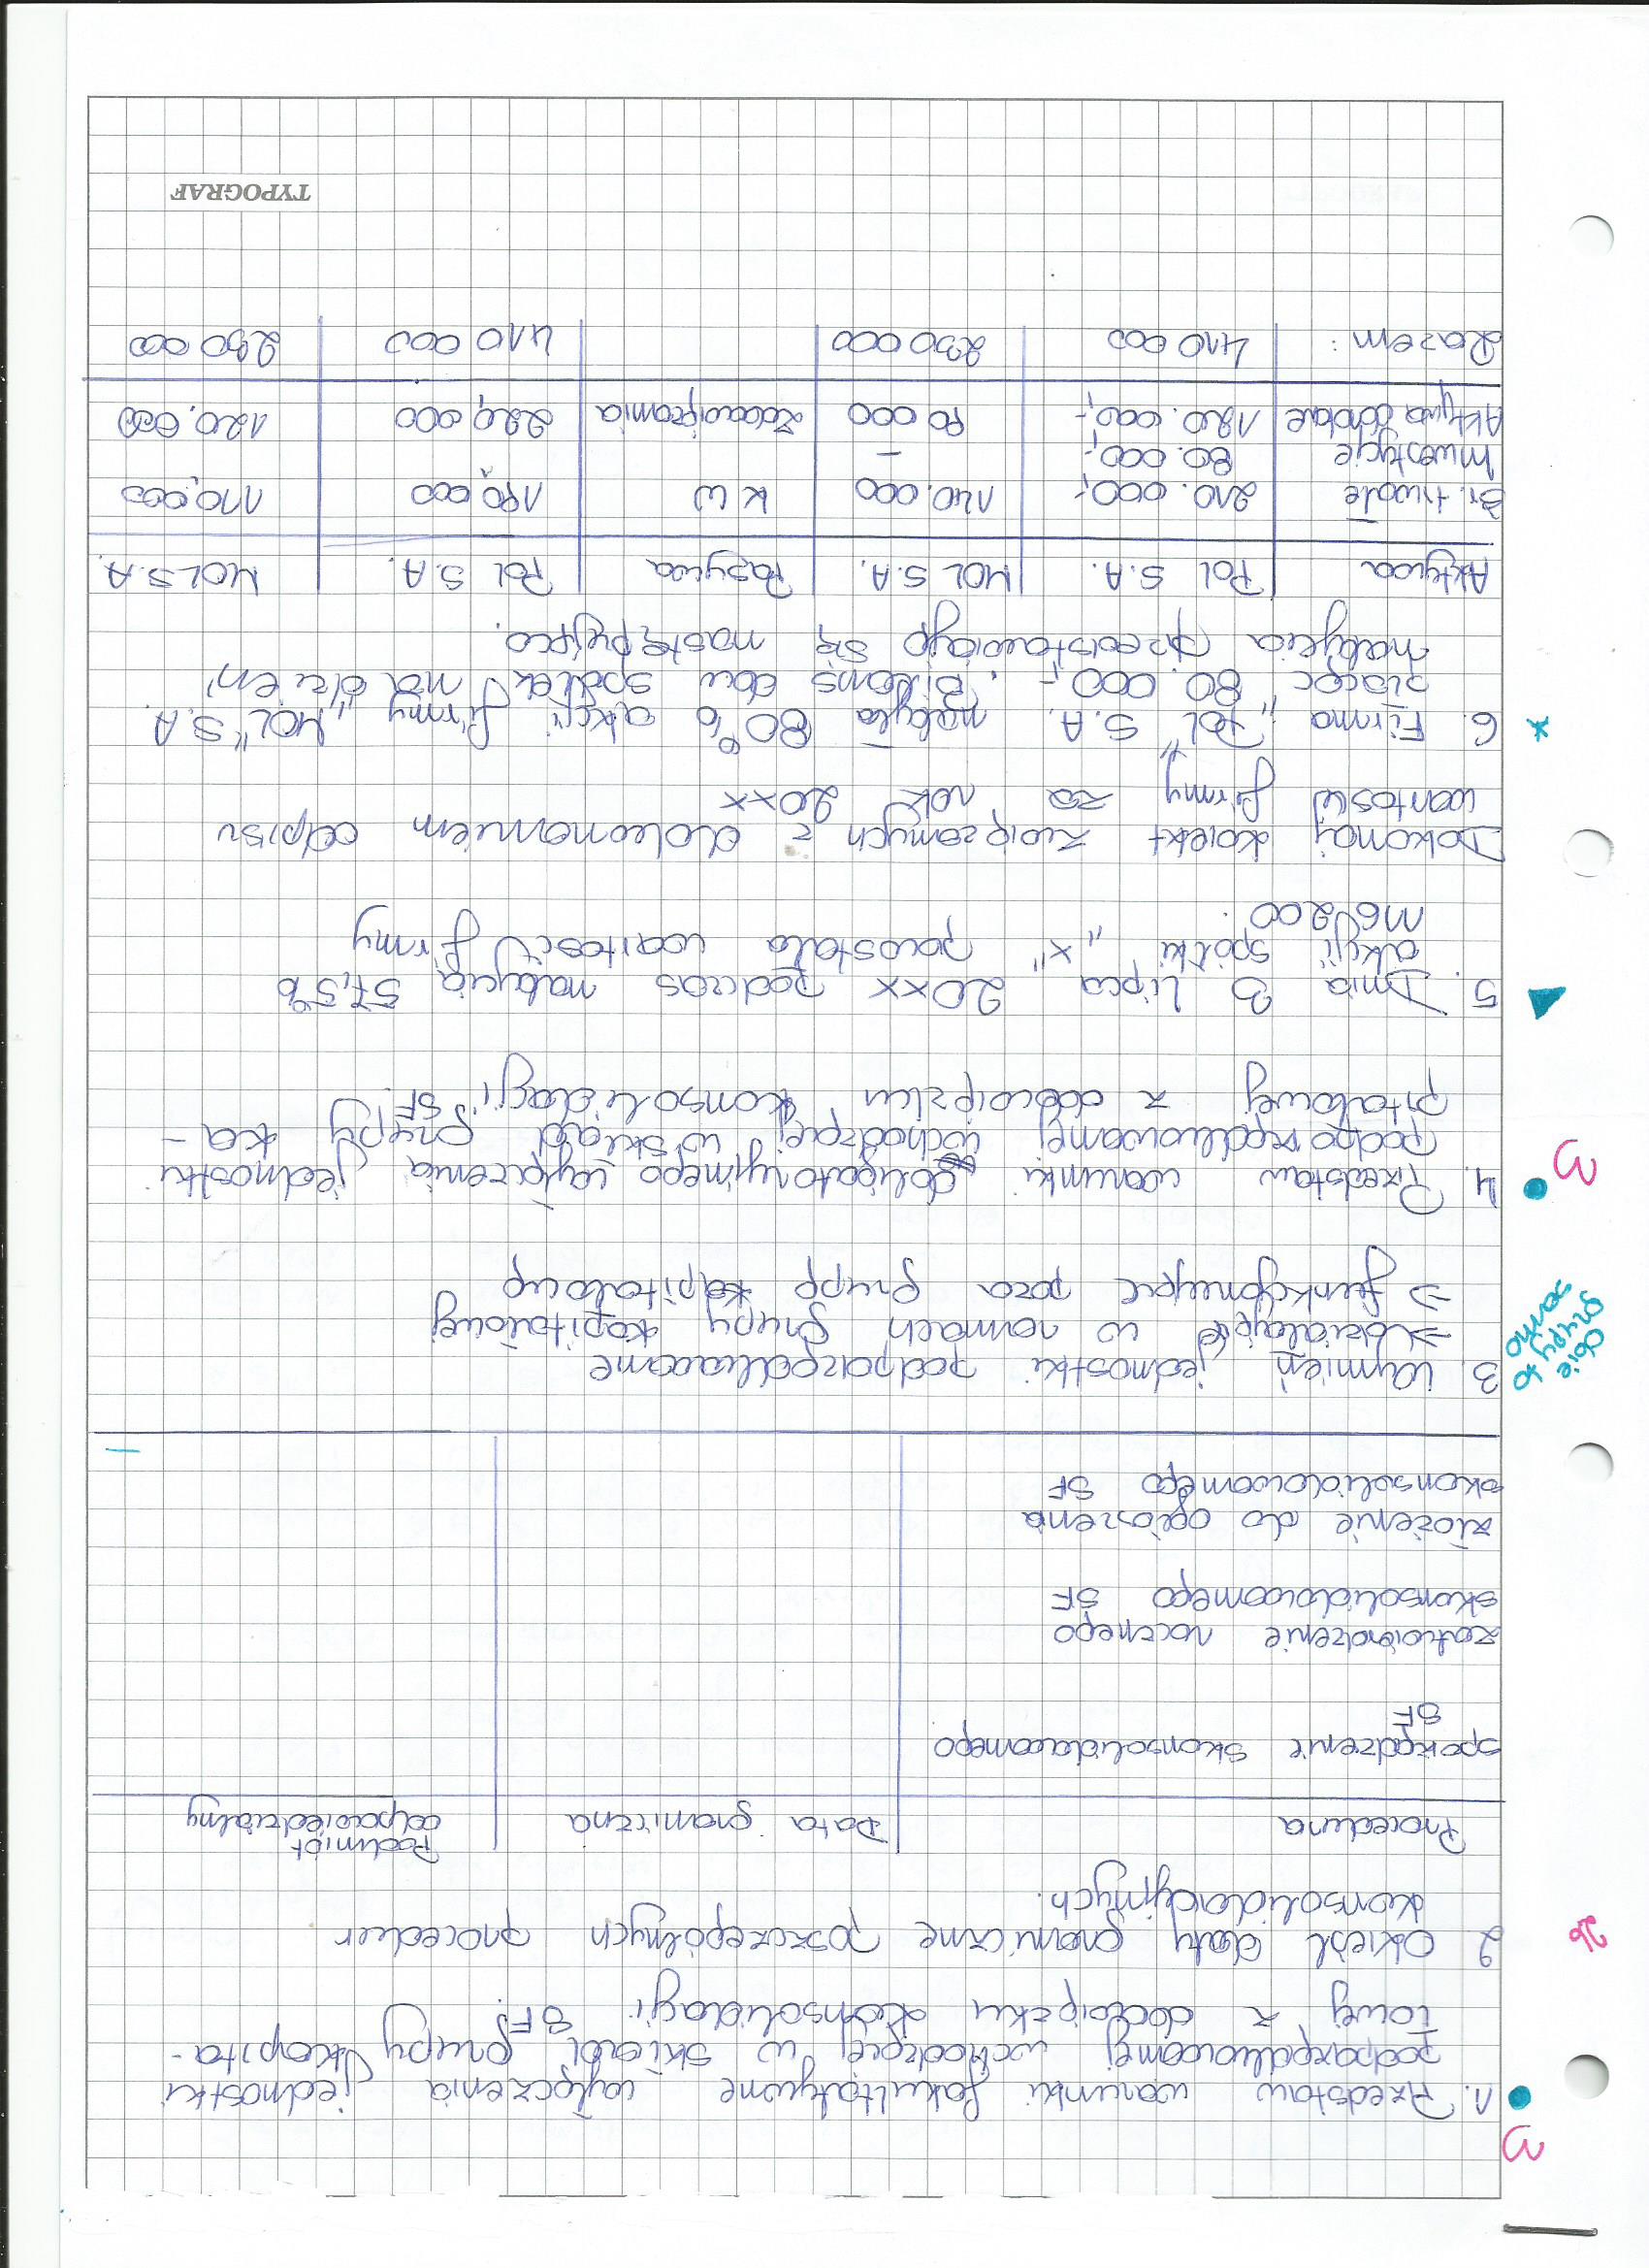 3
1. Przedstaw warunki fakultatywne wyłączenia jednostki
podporządkowanej wchodzącej w skład grupy kapita-
łowej z obowiązku konsolidacji SF.
26
2 Określ daty graniczne poszczególnych procedur
konsolidacyjnych.
Procedura | Data graniczna | Podmiot odpowiedzialny
sporządzenie skonsolidowanego
SF
zatwierdzenie rocznego
skonsolidowanego SF
złożenie do ogłoszenia
skonsolidowanego SF
obie grupy to samo
3. Wymień jednostki podporządkowane
→ działające w ramach grupy kapitałowej
→ funkcjonujące poza grupą kapitałową
3
4. Przedstaw warunki obligatoryjnego wyłączenia jednostki
podporządkowanej wchodzącej w skład grupy ka-
pitałowej z obowiązku konsolidacji SF.
5. Dnia 3 lipca 20xx podczas nabycia 57,5%
akcji spółki "x" powstała wartość firmy
m6200.
Dokonaj korekt związanych z dokonaniem odpisu
wartości firmy za rok 20xx
6. Firma "Pol" S.A. nabyła 80% akcji firmy "MOL" S.A.
płacąc 80.000,-. Bilans obu spółek na dzień
nabycia przedstawiają się następująco.
Aktywa | Pol S.A. | MOL S.A. | Pasywa | Pol S.A. | MOL S.A.
Śr. trwałe | 210.000,- | 140.000 | KW | 190,000 | 110,000
Inwestycje | 80.000,- | -
Aktywa obrotowe | 120.000,- | 90 000 | Zobowiązania | 220,000 | 120,000
Razem: | 410 000 | 230 000 | | 410 000 | 230 000
TYPOGRAF